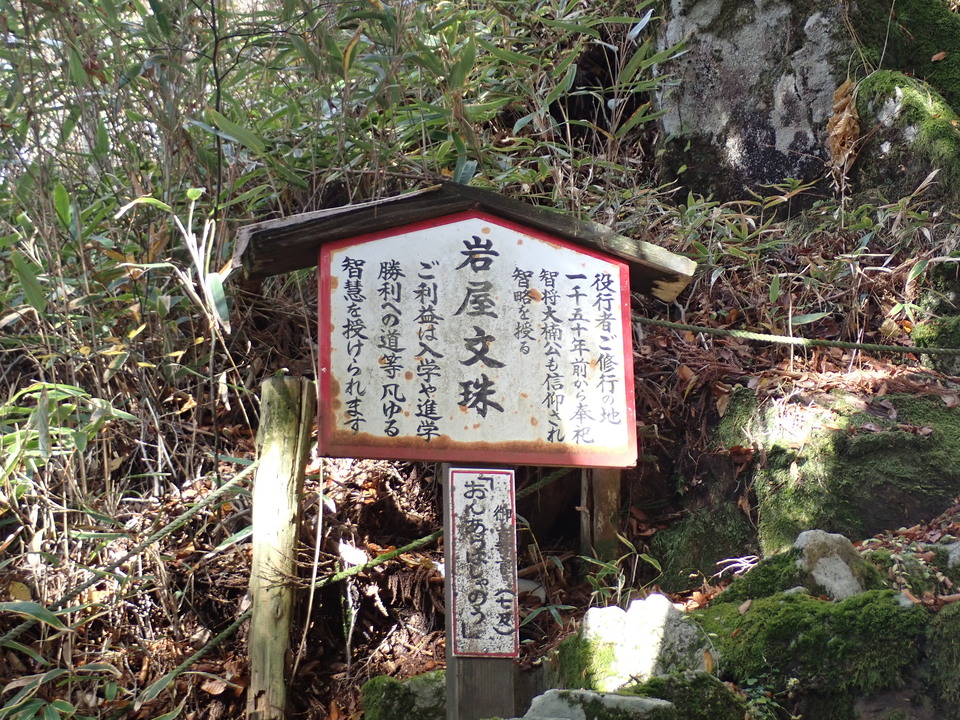 役行者ご修行の地
一千五十年前から奉祀
智将大楠公も信仰され
智略を授る
岩屋文珠
ご利益は入学や進学
勝利への道等凡ゆる
智慧を授けられます
御真言(七返)
「おんあらはしゃのう」